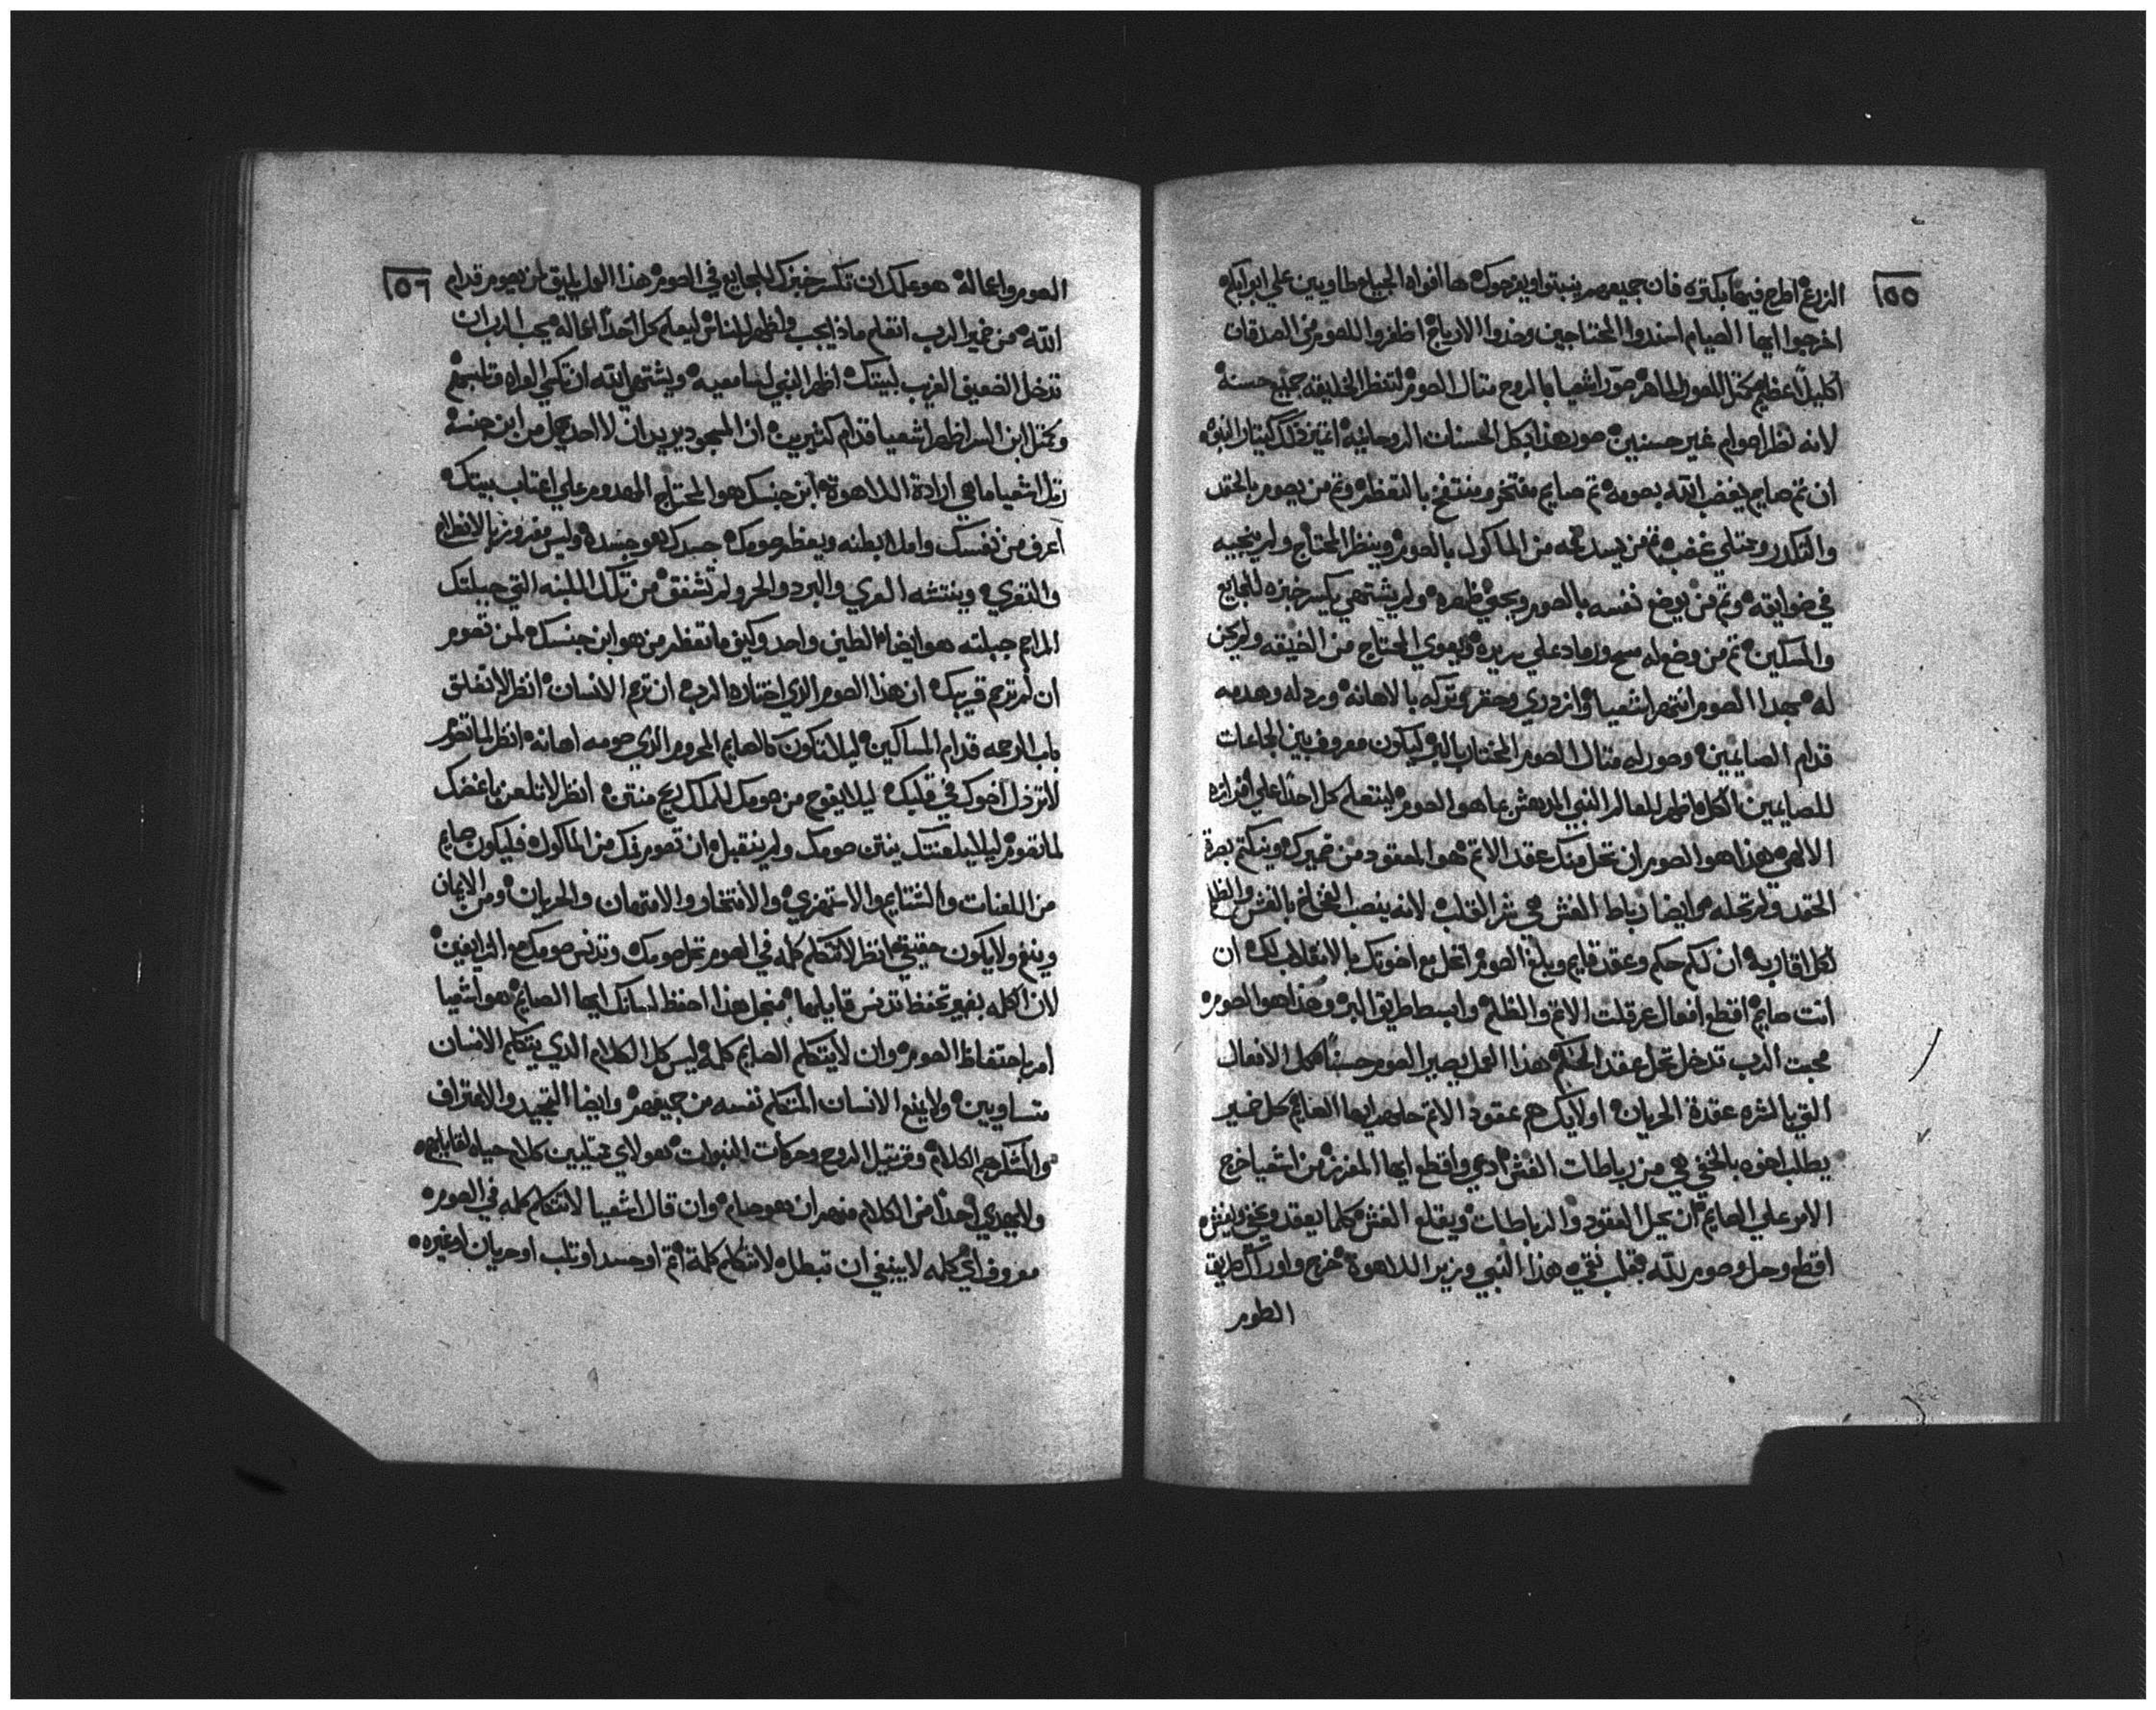 ١٥٥
الزرع اطرح فيها بكتره فان جميعهم ينبتوا ويفرحوك ها افواه الجياع مطاويين علي ابوابكم
اخرجوا ايها الصيام اسندوا المحتاجين وخدوا الارباح اظفروا للصوم من الصدقات
اكليلاً عظيم للصوم الطاهر صوّر اشعيا بالروح متال الصوم لتنظر الخليقه جميع حسنه
لانه نظر اصوام غير حسنين صور هذا بكل الحسنات الروحانيه
ان تم صايم يغضب الله بصومه تم صايم مفتخر ومنتفخ بالتعظم وتم من يصوم بالحقد
والتكدر وممتلي غضب تم من يسد فمه من الماكول بالصوم وينظر المحتاج ولم يجيبه
في ضوايقه وتم من يوضع نفسه بالصوم ويحني ظهره ولم يشتهي يكسر خبزه للجايع
والمسكين تم من وضع له مسح ورماد علي سريره ويعوي المحتاج من الضيقه ولم يحن
له بهدا الصوم اشعيا وازدري وحقره تركه بالاهانه ورذله وهدمه
قدام الصايمين وصور له متال الصوم المختار بالبر ليكون معروف بين الجماعات
للصايمين اظهر للعالم النبي المدهش بما هو الصوم ليتعلم كل احداً علي
الالهي هذا هو الصوم ان تحل منك عقد الاتم هو المعقود من ضميرك
الحقد ولم تحله هو ايضا رباط الغش هي شر القلب لانه ينصب الفخاخ بالغش والظلم
لكل اقاربه ان لكم حكم وعقد قايم وبلغ الصوم اتحل مع اخوتك
انت صايم اقطع افعال عرقلت الاتم والظلم وابسط طريق البر وهذا هو الصوم
محبت الرب تدخل تحل عقد الحكم هذا العمل يصير الصوم حسناً كمل الافعال
التي بالشره عقدة الحريان اولايك هم عقود الاتم حلهم ايها الصايم بكل ضمير
يطلب اخوه بالخفي هي من رباطات الغش ادمي واقطع ايها المفرز من اشعيا خرج
الامر علي الصايم ان يحل العقود والرباطات ويقلع الغش كلما يعقد ويخفي ويغش
اقطع وحل وصوم لله بقلب نقي هذا النبي وزير اللاهوة خرج واوراك طريق
الطوم
١٥٦
الصوم واعماله هو عملك ان تكسر خبزك للجايع في الصوم هذا العمل يليق لمن يصوم قدام
الله من ضمير الرب اتعلم ماذا يجب ولظهر للناس ليعلم كل احداً اعماله يحب الرب ان
تدخل الضعيف الغريب لبيتك اظهر النبي لسامعيه ويشتهي الله ان تكسي العراه وتلبسهم
وكمثل ابن السر اظهر اشعيا قدام كثيرين ان المسجود يريد ان لا احد يهمل من ابن جنسه
رتل اشعيا ما هي ارادة اللاهوة ابن جنسك هو المحتاج المعدوم علي اعتاب بيتك
اعرف من نفسك واملا بطنه ويعظم صومك جسدك هو جسده وليس مفروز بالانظام
والتعري وينتشه العري والبرد والحر ولم تشفق من تلك اللبنه التي جبلتك
المراحم جبلته هو ايضا الطين واحد وكيف ما تنظر من هو ابن جنسك لمن تصوم
ان لم ترحم قريبك ان هذا الصوم الذي اختاره الرب ان ترحم الانسان انظر لا تغلق
باب الرحمه قدام المساكين ليلا تكون كالصايم المحروم الذي صومه اهانه انظر لما تصوم
لا ترذل اخوك في قلبك ليلا يفوح من صومك للملك ريح منتن انظر لا تلعن باغضك
لما تصوم ليلا يلعنك بنتن صومك ولم ينقبل ان تصوم فمك من الماكول فليكون صايم
من اللعنات والشتايم والاستهزي والافتخار والامتهان والحريان ومن الايمان
وينبغي ولا يكون حقيقي انظر لا تتكلم كلمه في الصوم تحل صومك وتدنس صومك مع الزايفين
لان الكلمه بغير تحفظ تدنس قايلها منجل هذا احفظ لسانك ايها الصايم هو اشعيا
امر باحتفاظ الصوم وان لا يتكلم الصايم كلمه ليس كل الكلام الذي يتكلم الانسان
متساويين ولا يمنع الانسان المتكلم نفسه من جميعهم وايضا التمجيد والاعتراف
والشكر هم الكلام وترتيل الروح وحركات النبوات هولاي ممتليين كلام حياه لقايلهم
ولا يهدي احداً من الكلام منهم ان هو صايم وان قال اشعيا لا تتكلم كلمه في الصوم
معروف اي كلمه لا ينبغي ان تبطل لا تتكلم كلمة اتم او حسد او تلب او حريان او غيره